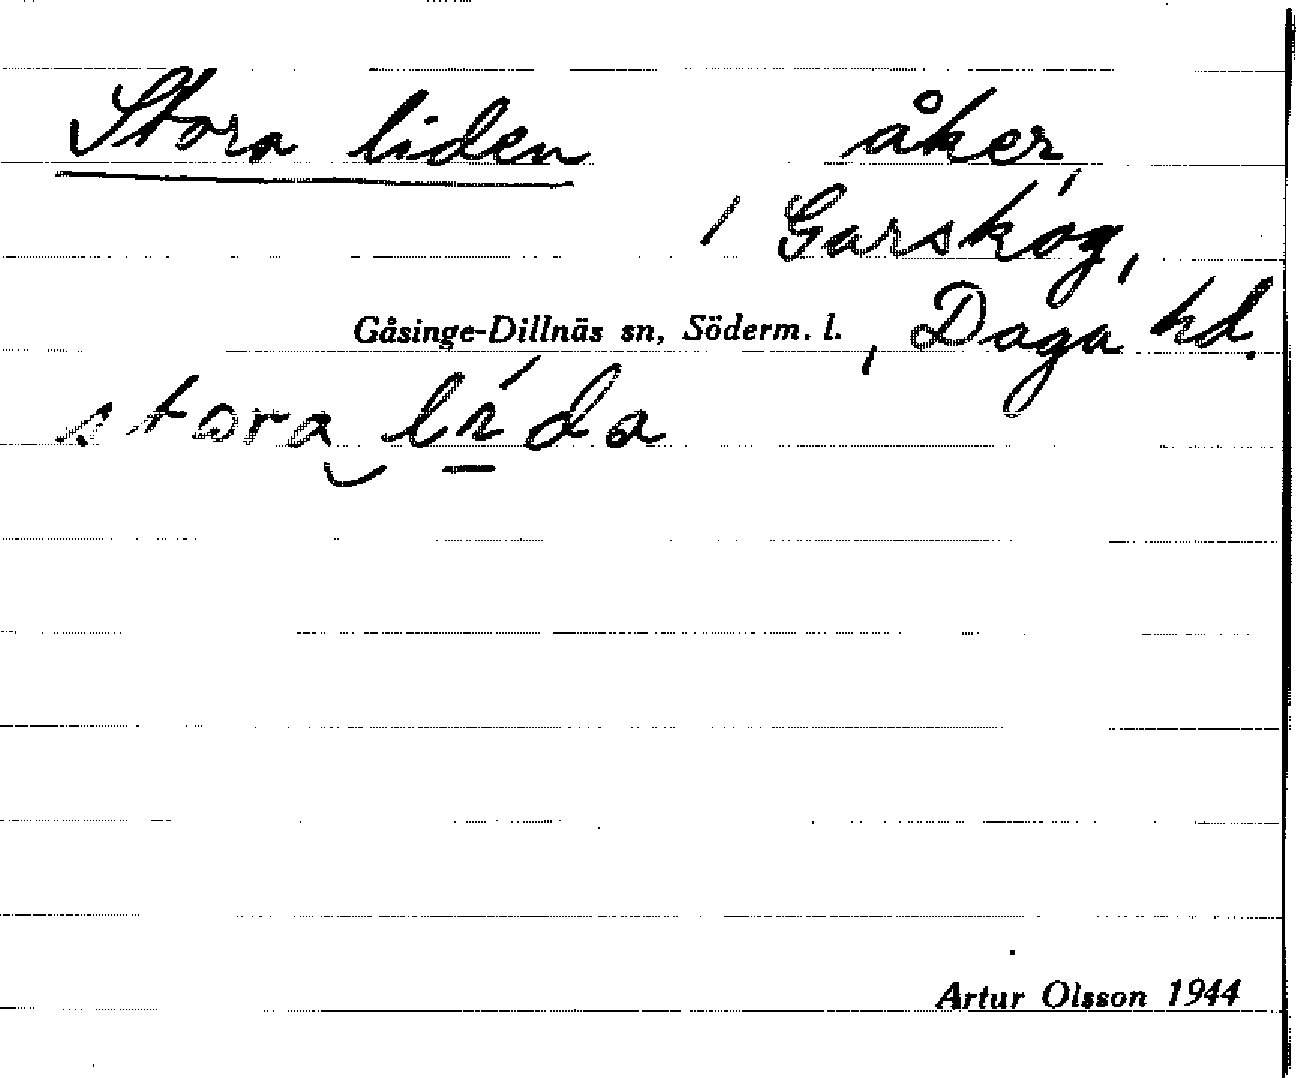 Stora liden åker,
/ Garskog,
Gåsinge-Dillnäs sn, Söderm. l., Daga hd.
stora lida
Artur Olsson 1944